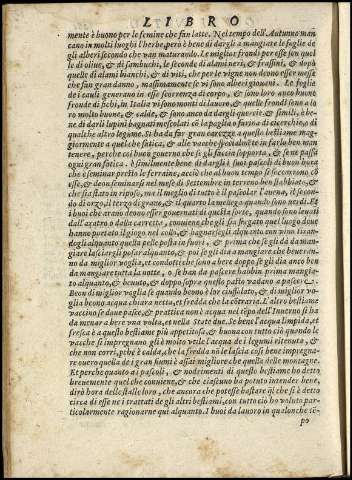 LIBRO
mente è buono per le femine che fan latte. Nel tempo dell'Autunno man
cano in molti luoghi l'herbe, però è bene di dargli a mangiare le foglie de
gli alberi secondo che van maturando. Le migliori frondi per esse son quel
le di olive, & di sambuchi, le seconde di alami neri, & frassini, & dopò
quelle di alami bianchi, & di viti, che per le vigne non deono esser messe
che fan gran danno, massimamente se vi sono alberi giovani. Le foglie
de i cauli generano in esse scorrenza di corpo, & sono loro anco buone
fronde di fichi, in Italia vi sono monti di lauro, & quelle frondi sono a lo
ro molto buone, & calde, & sono anco da dargli quercie, & simili, è be-
ne di dar li lupini bagnati mescolati cõ la paglia o farina di cicerchia, o di
qualche altro legume. Si ha da far gran carezze a questo bestiame mag-
giormente a quel che fatica, & alle vacche
tenere, perche col buon governo che se gli fa
ogni gran fatica. E similmente bene di dargli i suoi pascoli di buon herba
che è seminar presto le ferraine, acciò che al buon tempo si soccorrono cõ
esse, & deonsi seminare nel mese di Settembre in terreno ben stabbiato, &
che sia stato in riposo, ma il meglio di tutto è il pascolar l'avena, il secon
do d'orzo, il terzo di grano, & il quarto la melega quando sono verdi. Et
i buoi che arano deono esser governati di questa sorte, quando sono levati
dall'aratro o dalla carretta, conviene che gli sia fregato quel luogo dove
hanno portato il giogo nel collo, & bagnarsegli alquanto con vino tiran-
dogli alquanto quella pelle posta in fuori, & prima che se gli dà da man-
giare lasciargli posar alquanto, & poi se gli dia a mangiare che beveran-
no di miglior voglia, et condotti che sono a bere dopò, se gli dia anco ben
da mangiare tutta la notte, o se han da pascere habbin prima mangia-
to alquanto, & bevuto, & doppo sopra questo patto vadano a pascere.
Beon di miglior voglia se quando beono è lor ciufolato, & di miglior vo
glia beono acqua chiara netta, et fredda che la cõtraria. L'altro bestiame
vaccino se dove pasce, & prattica non è acqua nel tẽpo dell'Inverno si ha
da menar a bere una volta, et nella State due. Se beve l'acqua limpida, et
fresca è a questo bestiame più appetitosa, & buona con tutto ciò quando le
vacche si impregnano gli è molto utile l'acqua de i legumi ritenuta, &
che non corri, pche è calda, che la fredda nõ le lascia così bene impregna-
re overo quella de i gran fiumi è assai migliore che quella delle montagne.
Et perche quanto ai pascoli, & nodrimenti di questo bestiame ho detto
brevemente quel che conviene, & che ciascuno ha potuto intender bene,
dirò hora delle stalle loro, che ancora che potesse bastare ql che si è detto
circa di esse ne i trattati de gli altri bestiami, con tutto ciò ho voluto par-
ticolarmente ragionarne qui alquanto. I buoi da lavoro in qualonche tẽ-
po